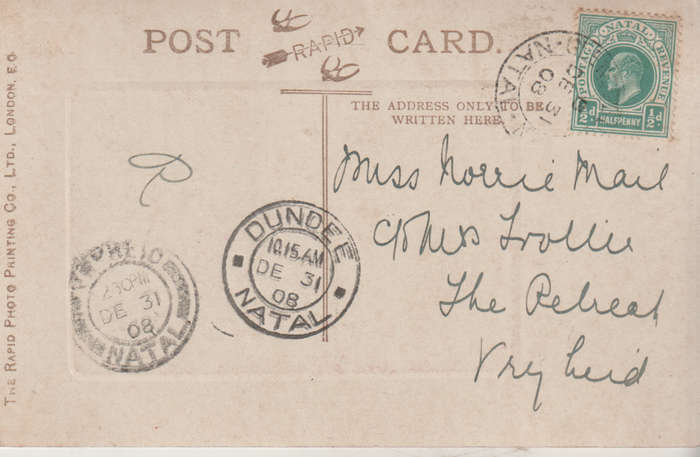 POST CARD.
RAPID
THE ADDRESS ONLY TO BE
WRITTEN HERE
POSTAGE NATAL REVENUE
½d HALFPENNY ½d
NATAL
DE 31
08
Miss Norrie Mail
c/o Mrs Trollie
The Retreat
Vryheid
DUNDEE
10.15 AM
DE 31
08
NATAL
VRYHEID
2.30 PM
DE 31
08
NATAL
THE RAPID PHOTO PRINTING CO., LTD., LONDON, E.C.